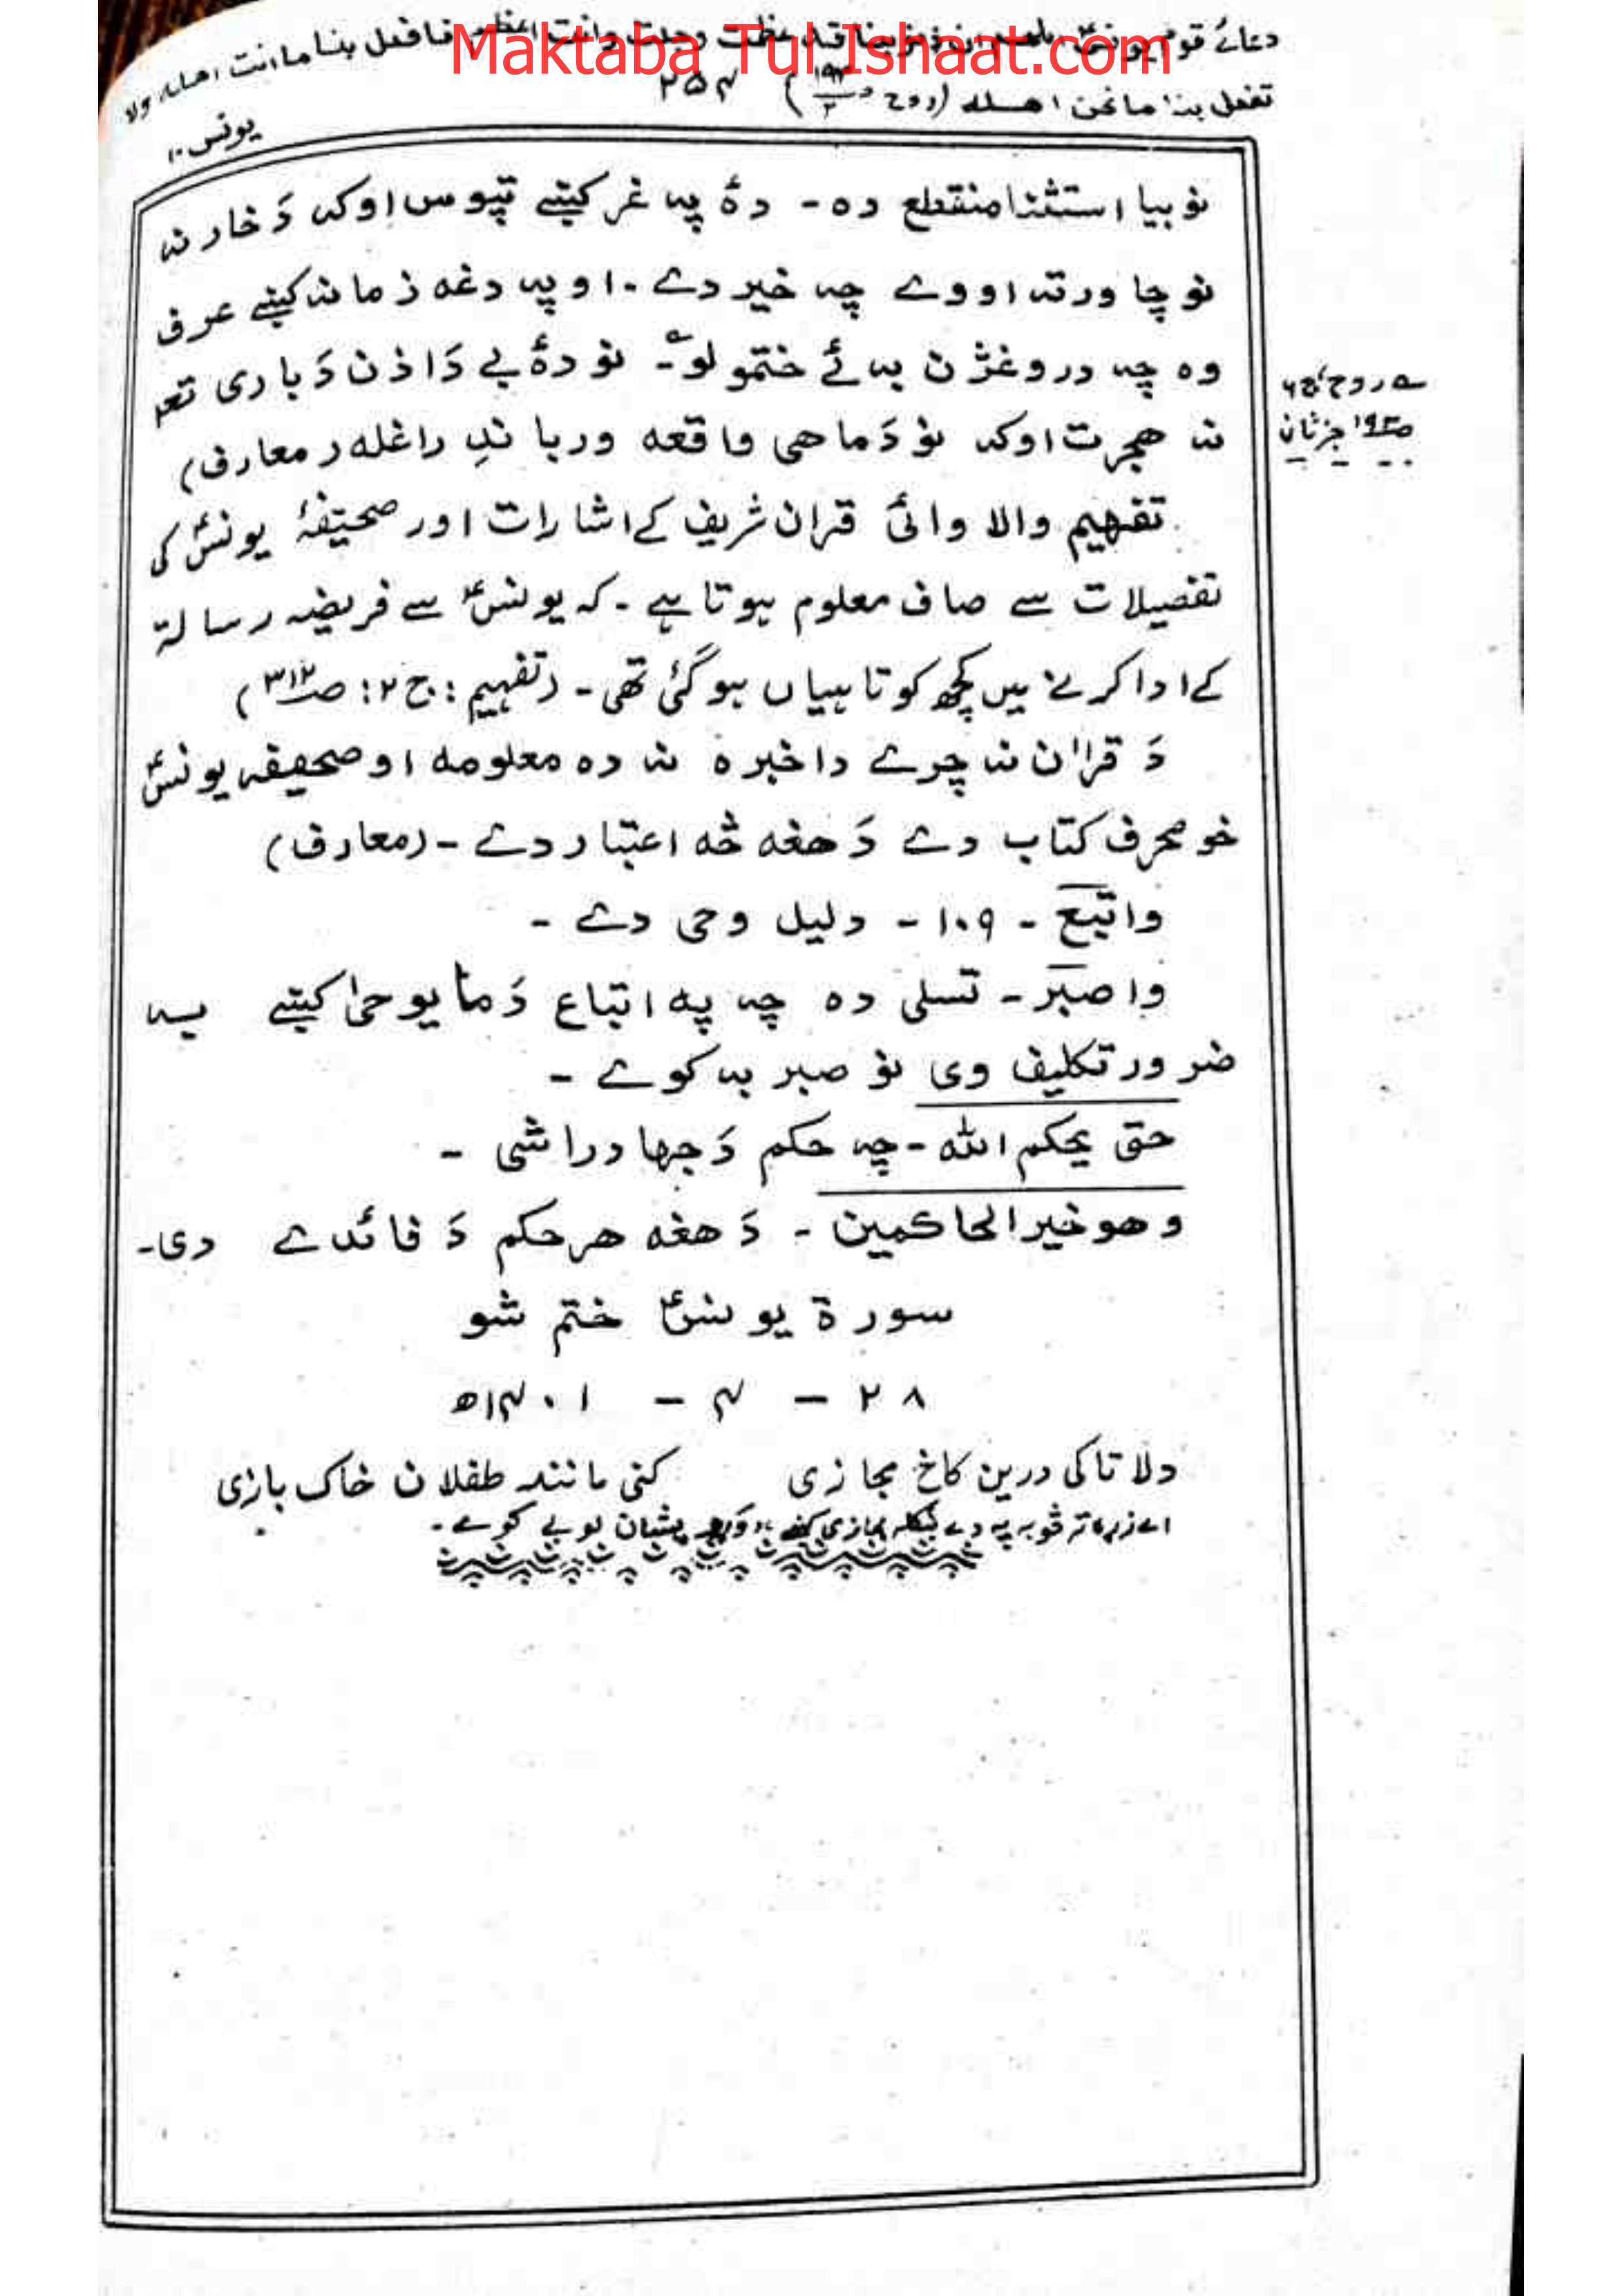 Maktaba Tul Ishaat.com
دعائے قوم یونسؑ وجلت وانت اعظم فافعل بنا ما انت اهله ولا
تفعل بنا ما نحن اهله (روح ص ۱۹۳/۲) ۲۵۴
یونس ۱۰
نو بیا استثنا منقطع ده - دۀ په غر کښے تپوس اوکه دَ خار نه
نو چا ورته اووے چه خیر دے - او په دغه زمانه کښے عرف
وه چه دروغژن به ئے ختمولو ؎ نو دۀ بے دَ اذن دَ باری تعہ
؎ روح
نه هجرت اوکه نو دَ ماهی واقعه ورباندِ راغله (معارف)
تفهیم والا وائی قران شریف کے اشارات اور صحیفۂ یونسؑ کی
تفصیلات سے صاف معلوم ہوتا ہے - کہ یونسؑ سے فریضہ رسالۃ
کے ادا کرنے میں کچھ کوتاہیاں ہوگئی تھی - (تفہیم : ج ۲ : ص ۳۱۲)
دَ قرآن نه چرے داخبره نه ده معلومه او صحیفه یونسؑ
خو محرف کتاب دے دَ هغه څه اعتبار دے - (معارف)
واتبع - ۱۰۹ - دلیل وحی دے -
واصبر - تسلی ده چه په اتباع دَ ما یوحیٰ کښے به
ضرور تکلیف وی نو صبر به کوے -
حتی یحکم الله - چه حکم دَ جهاد راشی -
وهو خیر الحاکمین - دَ هغه هر حکم دَ فائدے دی -
سورة یونسؑ ختم شو
۲۸ - ۴ - ۱۴۰۱ھ
دلا تاکی درین کاخ مجازی کنی مانند طفلان خاک بازی
اے زړه تر څو به په دے بنګله مجازی کښے پشان لوبے کوے -